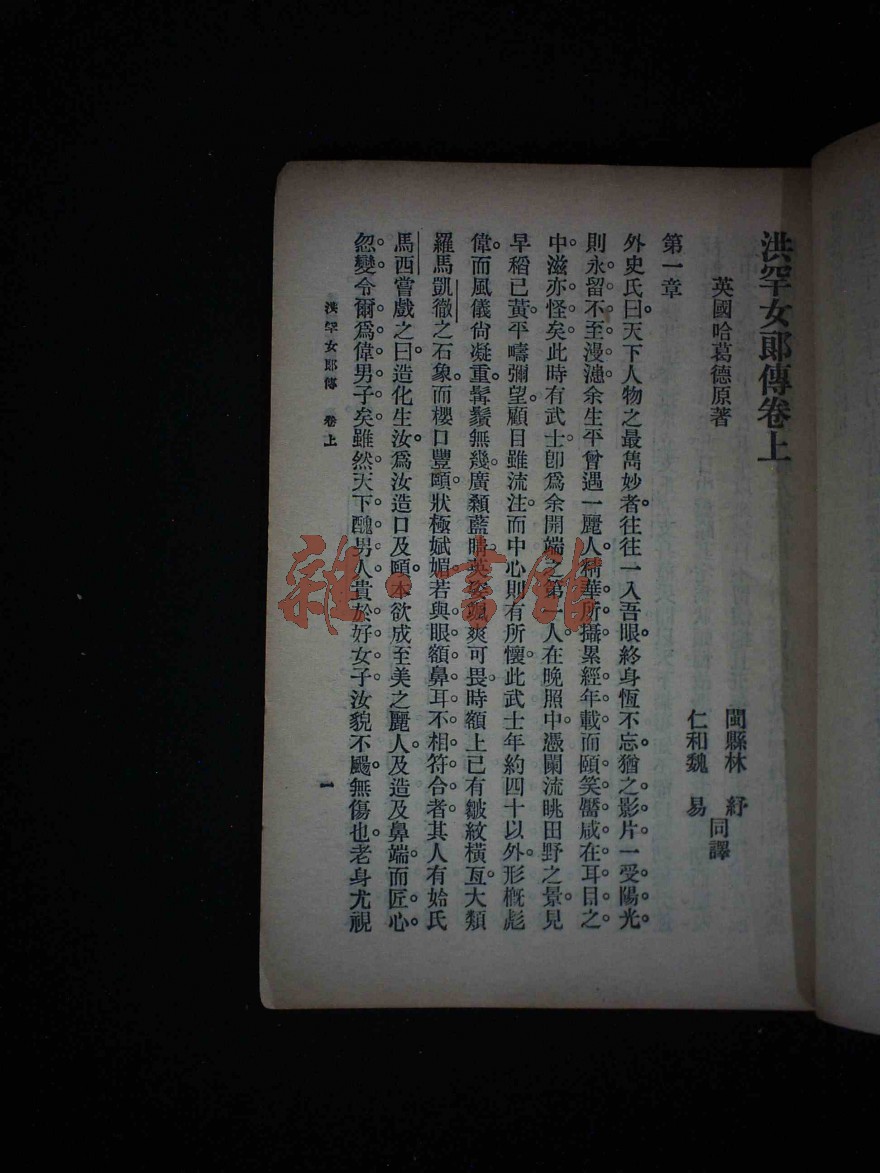 洪罕女郎傳卷上
英國哈葛德原著
閩縣林　紓
仁和魏　易
同譯
第一章
外史氏曰。天下人物之最雋妙者。往往一入吾眼。終身恆不忘。猶之影片一受陽光。
則永留不至漫漶。余生平曾遇一麗人。精華所攝。累經年載。而頤笑饜咸在耳目之
中。滋亦怪矣。此時有武士。卽爲余開端之第一人。在晚照中。憑闌流眺田野之景。見
早稻已黃。平疇彌望。顧目雖流注。而中心則有所懷。此武士年約四十以外。形概彪
偉。而風儀尙凝重。髯鬚無幾。廣顙藍睛。英姿颯爽可畏。時額上已有皺紋橫亙。大類
羅馬凱徹之石象。而櫻口豐頤。狀極娬媚。若與眼額鼻耳不相符合者。其人有姶氏
馬西嘗戲之曰。造化生汝。爲汝造口及頤。本欲成至美之麗人。及造及鼻端。而匠心。
忽變。令爾爲偉男子矣。雖然。天下醜男人。貴於好女子。汝貌不颺。無傷也。老身尤視
洪罕女郎傳　卷上
一
雜·書館